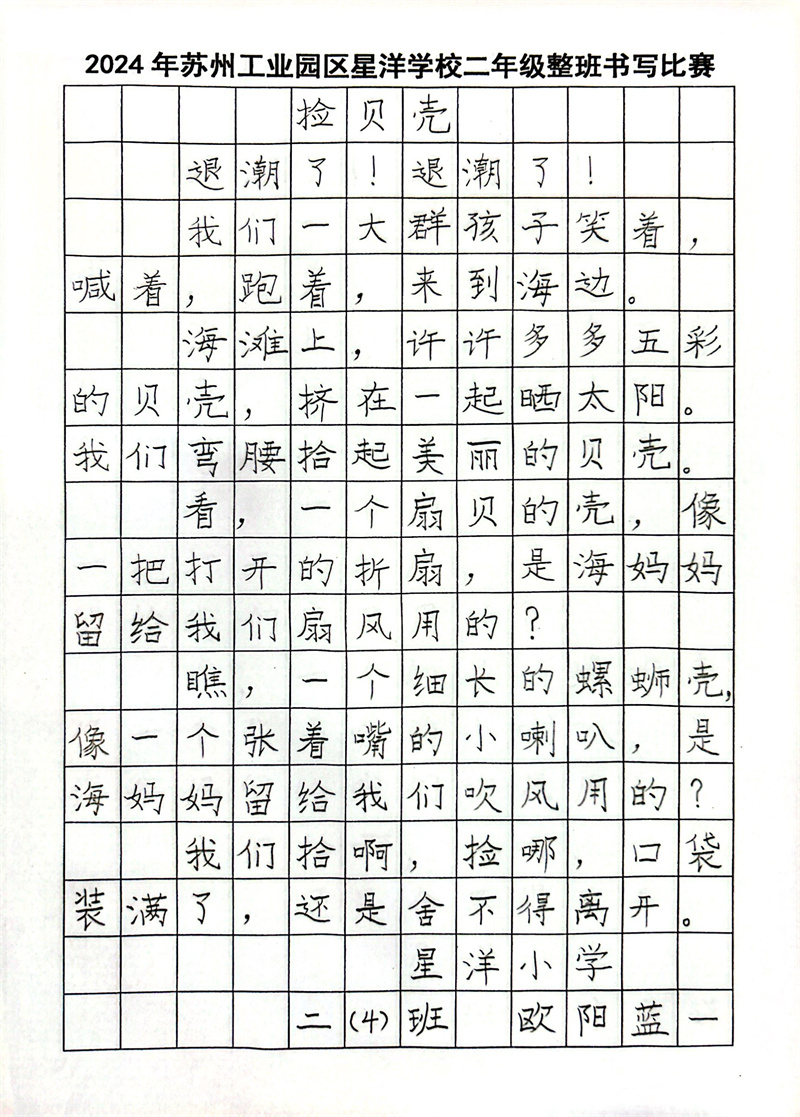 2024年苏州工业园区星洋学校二年级整班书写比赛
捡贝壳
退潮了！退潮了！
我们一大群孩子笑着，
喊着，跑着，来到海边。
海滩上，许许多多五彩
的贝壳，挤在一起晒太阳。
我们弯腰拾起美丽的贝壳。
看，一个扇贝的壳，像
一把打开的折扇，是海妈妈
留给我们扇风用的？
瞧，一个细长的螺蛳壳，
像一个张着嘴的小喇叭，是
海妈妈留给我们吹风用的？
我们拾啊，捡哪，口袋
装满了，还是舍不得离开。
星洋小学
二（4）班 欧阳蓝一